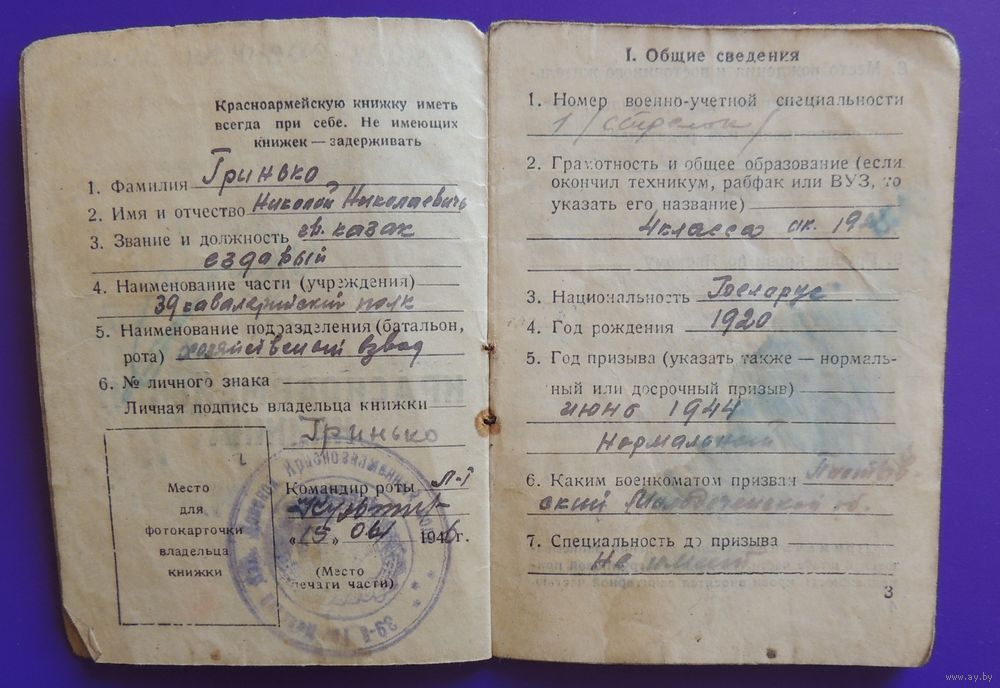 Красноармейскую книжку иметь
всегда при себе. Не имеющих
книжек — задерживать
1. Фамилия Гринько
2. Имя и отчество Николай Николаевич
3. Звание и должность гв. казак
ездовый
4. Наименование части (учреждения)
39 кавалерийский полк
5. Наименование подразделения (батальон,
рота) хозяйственный взвод
6. № личного знака
Личная подпись владельца книжки
Гринько
Место
для
фотокарточки
владельца
книжки
Командир роты Л-т
"15" 04 1946 г.
(Место
печати части)
Краснознамен
39-й
I. Общие сведения
1. Номер военно-учетной специальности
1 /стрелок/
2. Грамотность и общее образование (если
окончил техникум, рабфак или ВУЗ, то
указать его название)
4 класса ок. 19
3. Национальность Беларус
4. Год рождения 1920
5. Год призыва (указать также — нормаль-
ный или досрочный призыв)
июнь 1944
нормальный
6. Каким военкоматом призван Постав
ский Молодеченской об.
7. Специальность до призыва
Не имеет
3
www.ay.by